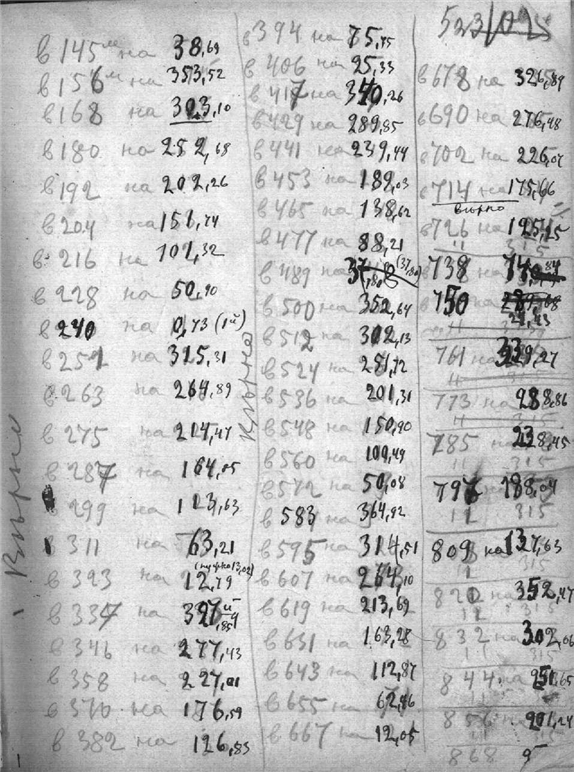 в 145 м на 38,69
в 156 м на 353,52
в 168 на 303,10
в 180 на 252,68
в 192 на 202,26
в 204 на 151,74
в 216 на 101,32
в 228 на 50,90
в 240 на 0,43 (1й)
в 251 на 315,31
в 263 на 264,89
в 275 на 214,47
в 287 на 164,05
в 299 на 113,63
в 311 на 63,21
в 323 на 12,79
в 337 на
в 346 на 277,43
в 358 на 227,01
в 370 на 176,59
в 382 на 126,83
Вѣрно
в 394 на 75,75
в 406 на 25,33
в 417 на 340,26
в 429 на 289,85
в 441 на 239,44
в 453 на 189,03
в 465 на 138,62
в 477 на 88,21
в 489 на (37,80)
в 500 на 352,64
в 512 на 302,13
в 524 на 251,72
в 536 на 201,31
в 548 на 150,90
в 560 на 100,49
в 572 на 50,08
в 583 на 364,92
в 595 на 314,51
в 607 на 264,10
в 619 на 213,69
в 631 на 163,28
в 643 на 112,87
в 655 на 62,46
в 667 на 12,05
в 678 на 326,89
в 690 на 276,48
в 702 на 226,07
в 714 на 175,66
вѣрно
в 726 на 125,25
738
750
761 на
773 на 288,86
785 на 238,45
797 на 188,04
809 на 137,63
820 на 352,47
832 на 302,06
844 на 251,65
856 на 201,24
868